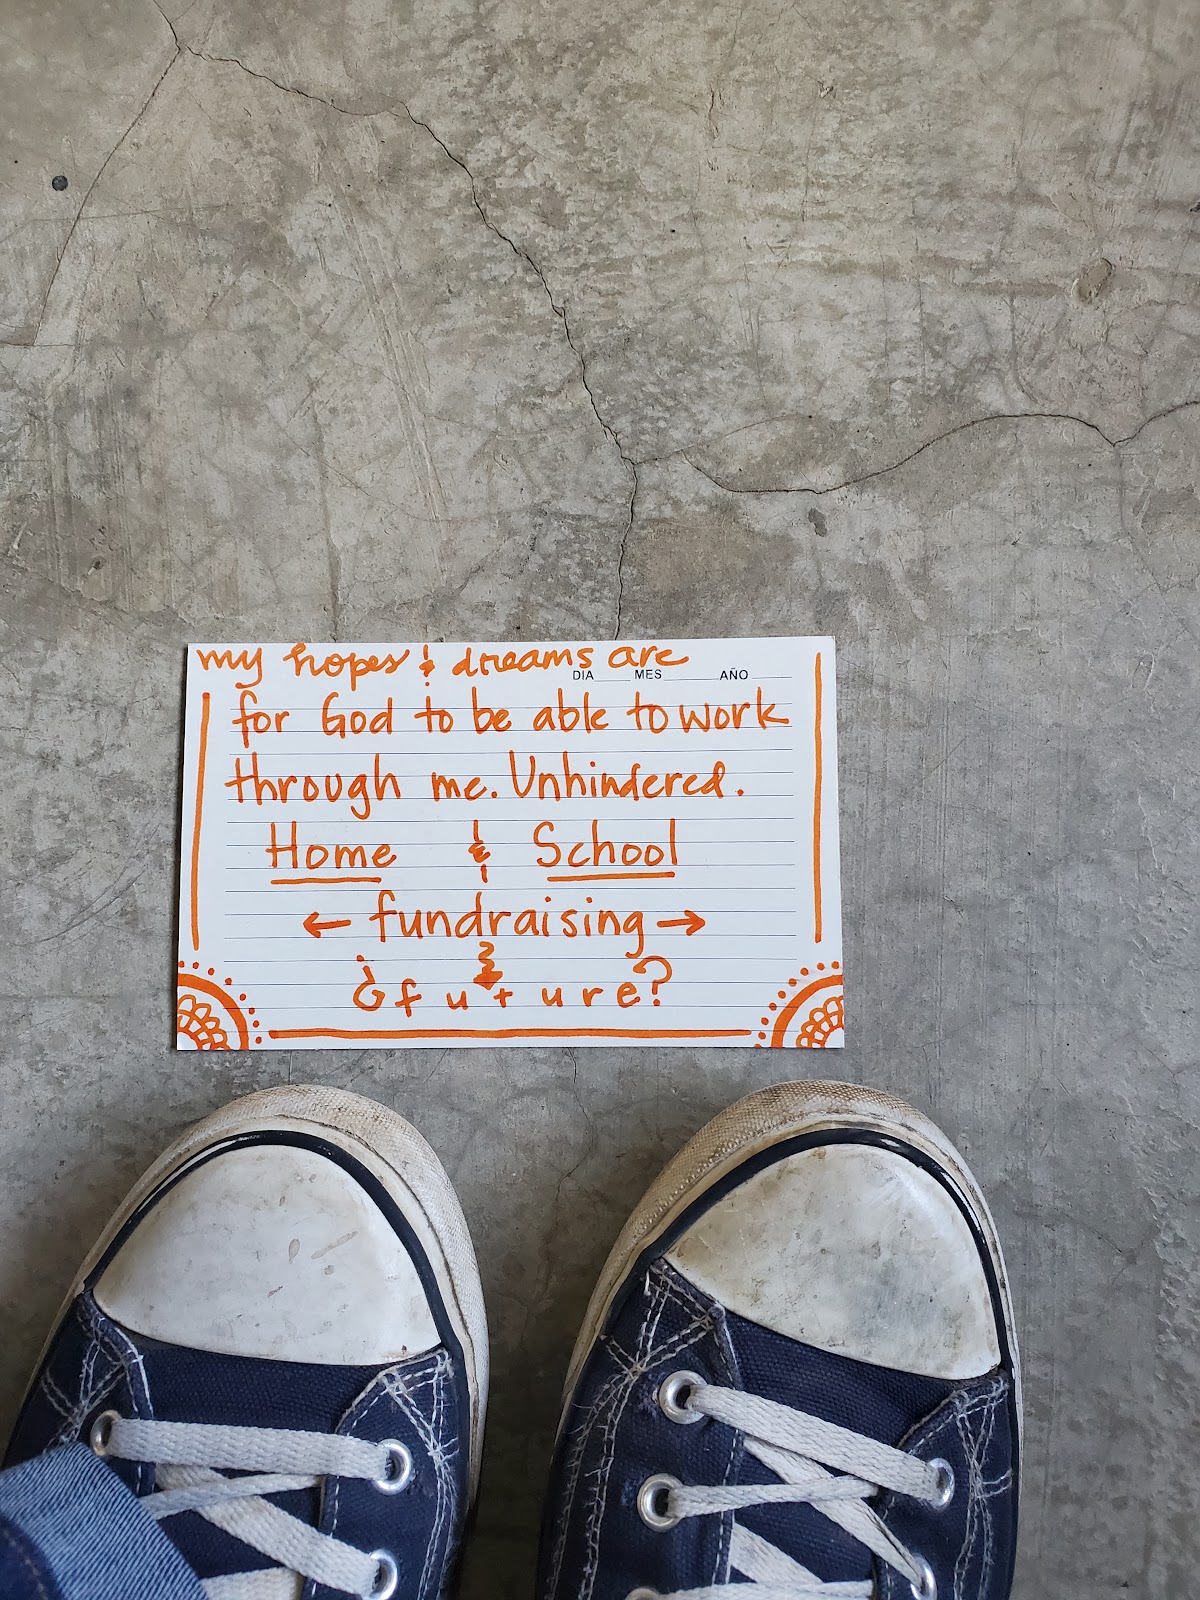 my hopes & dreams are
DIA MES AÑO
for God to be able to work
through me. Unhindered.
Home & School
← fundraising →
&
¿future?